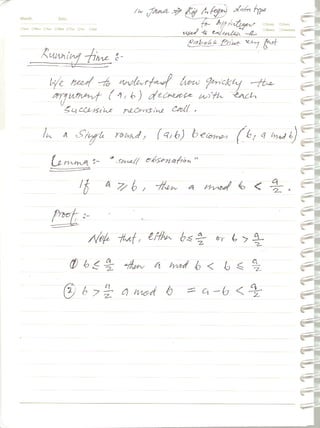 in Java → Big Integer data type
for Big integer
used to calculate
Probable Prime very fast
Running time :-
We need to understand how quickly the
argument (a, b) decrease with each
successive recursive call.
In a Single round, (a,b) becomes (b, a mod b)
Lemma :- "small observation"
If a ≥ b, then a mod b < a/2.
Proof :-
Note that, either b ≤ a/2 or b > a/2
① b ≤ a/2 then a mod b < b ≤ a/2
② b > a/2 a mod b = a-b < a/2